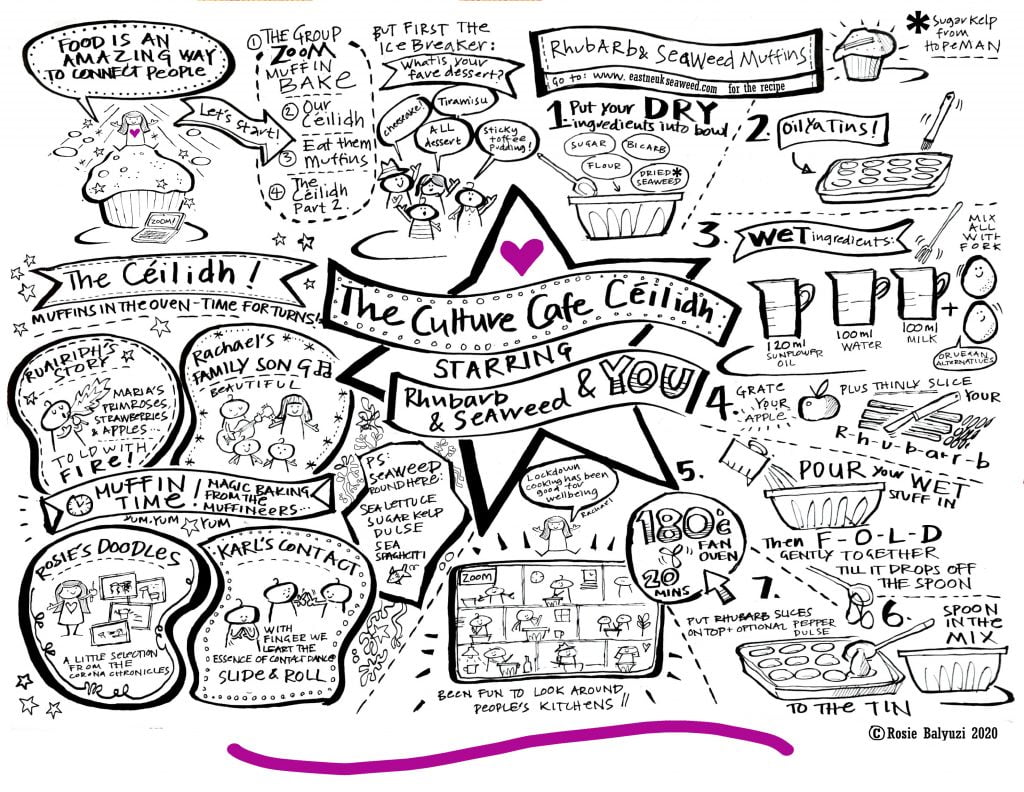 FOOD IS AN
AMAZING WAY
TO CONNECT PEOPLE
Let's start!
ZOOM!
① THE GROUP
ZOOM
MUFFIN
BAKE
② Our
Céilidh
③ Eat them
muffins
④ The
Céilidh
Part 2.
BUT FIRST THE
ICE BREAKER:
What is your
fave dessert?
cheescake!
Tiramisu
ALL
dessert
Sticky
toffee
Pudding!
Rhubarb & Seaweed Muffins
Go to: www. eastneukseaweed.com for the recipe
* Sugar Kelp
from
HOPEMAN
1. Put your DRY
ingredients into bowl
SUGAR
BICARB
FLOUR
DRIED *
SEAWEED
2. Oil ya Tins!
3. WET ingredients:
MIX
ALL
WITH
FORK
120ml
SUNFLOWER
OIL
100ml
WATER
100ml
MILK
+
OR VEGAN
ALTERNATIVES
The Céilidh!
MUFFINS IN THE OVEN - TIME FOR TURNS!
The Culture Cafe Céilidh
STARRING
Rhubarb
& Seaweed & YOU
RUAIRIDH'S
STORY
MARIA'S
PRIMROSES,
STRAWBERRIES
& APPLES...
TOLD WITH
FIRE!
Rachael's
FAMILY SONG
BEAUTIFUL
MUFFIN
TIME!
MAGIC BAKING
FROM THE
MUFFINEERS...
YUM, YUM
YUM
ROSIE'S DOODLES
A LITTLE SELECTION
FROM THE
CORONA CHRONICLES
KARL'S CONTACT
WITH
FINGER WE
LEART THE
ESSENCE OF CONTACT DANCE
SLIDE & ROLL
PS:
SEAWEED
ROUND HERE:
SEA LETTUCE
SUGAR KELP
DULSE
SEA
SPAGHETTI
Lockdown
cooking has been
good for
wellbeing
Rachael
Zoom
BEEN FUN TO LOOK AROUND
PEOPLE'S KITCHENS!!
4. GRATE
YOUR
APPLE
PLUS THINLY SLICE
YOUR
R-h-u-b-a-r-b
5.
180°c
FAN
OVEN
20
MINS
POUR your WET
STUFF IN
Then F-O-L-D
GENTLY TOGETHER
TILL IT DROPS OFF
THE SPOON
6. SPOON
IN THE
MIX
TO THE TIN
7.
PUT RHUBARB SLICES
ON TOP + OPTIONAL PEPPER
DULSE
© Rosie Balyuzi 2020